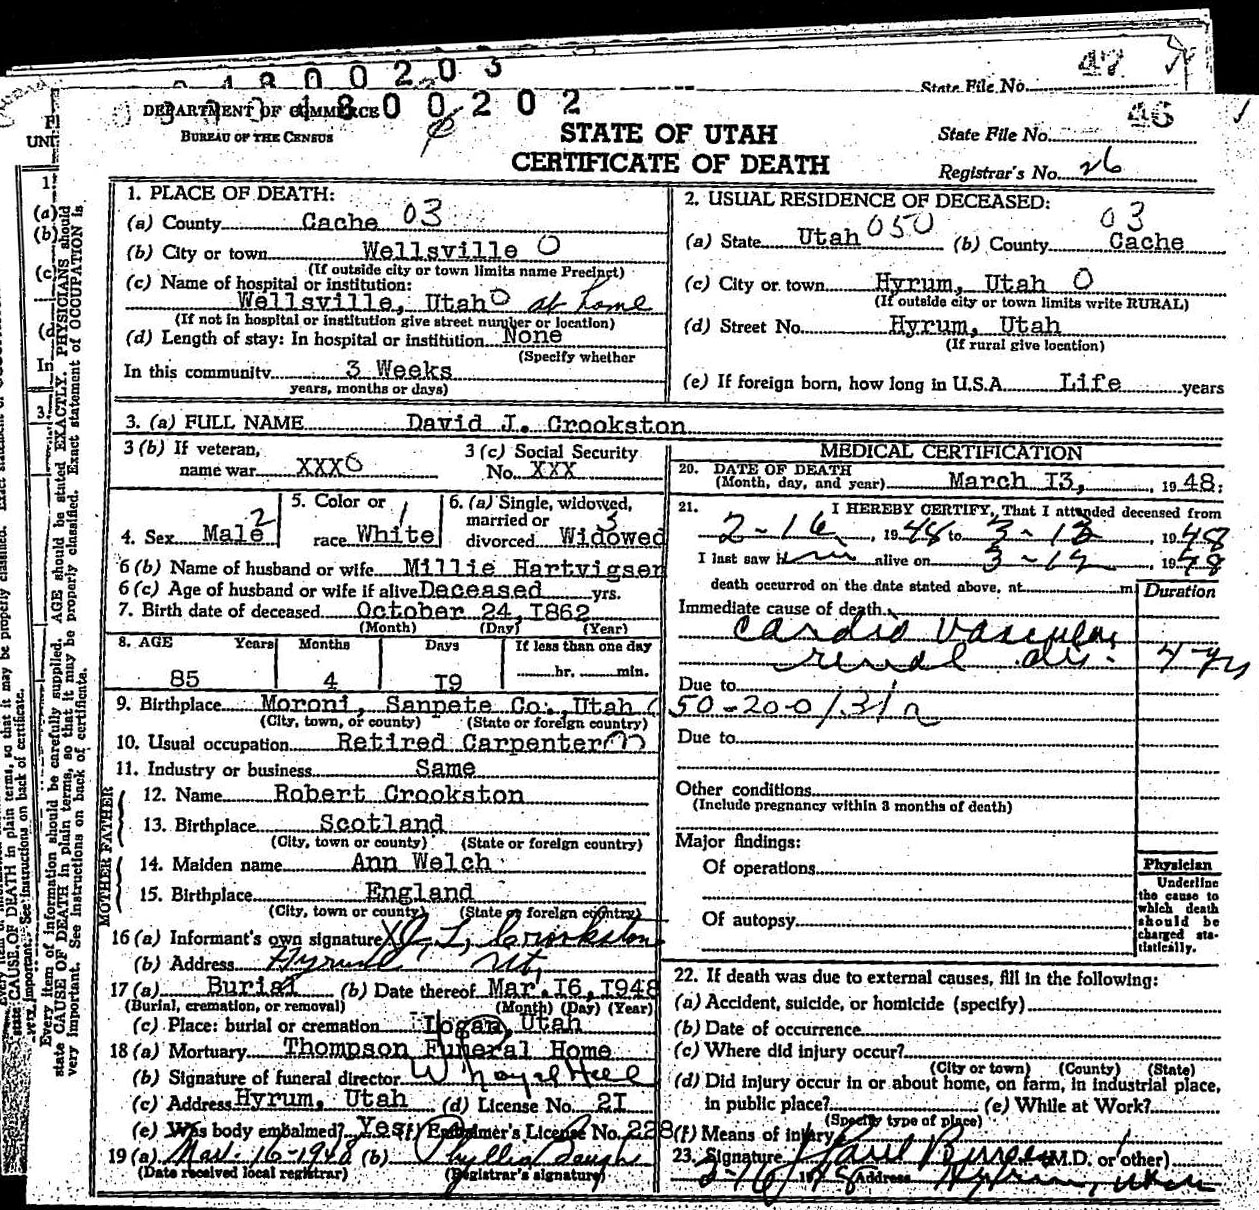 4800203
47
State File No.
DEPARTMENT OF COMMERCE
4800202
BUREAU OF THE CENSUS
STATE OF UTAH
CERTIFICATE OF DEATH
State File No. 46
Registrar's No. 26
1. PLACE OF DEATH:
(a) County Cache 03
(b) City or town Wellsville 0
(If outside city or town limits name Precinct)
(c) Name of hospital or institution:
Wellsville, Utah 0 at home
(If not in hospital or institution give street number or location)
(d) Length of stay: In hospital or institution None
(Specify whether
In this community 3 Weeks
years, months or days)
2. USUAL RESIDENCE OF DECEASED:
(a) State Utah 050 (b) County Cache 03
(c) City or town Hyrum, Utah 0
(If outside city or town limits write RURAL)
(d) Street No. Hyrum, Utah
(If rural give location)
(e) If foreign born, how long in U.S.A. Life years
3. (a) FULL NAME David J. Crookston
3 (b) If veteran,
name war XXX
3 (c) Social Security
No. XXX
4. Sex Male 2
5. Color or
race White 1
6. (a) Single, widowed,
married or
divorced Widowed 3
6 (b) Name of husband or wife Millie Hartvigsen
6 (c) Age of husband or wife if alive Deceased yrs.
7. Birth date of deceased October 24, I862
(Month) (Day) (Year)
8. AGE Years Months Days If less than one day
85 4 I9 hr. min.
9. Birthplace Moroni, Sanpete Co., Utah
(City, town, or county) (State or foreign country)
10. Usual occupation Retired Carpenter
11. Industry or business Same
FATHER
12. Name Robert Crookston
13. Birthplace Scotland
(City, town or county) (State or foreign country)
MOTHER
14. Maiden name Ann Welch
15. Birthplace England
(City, town or county) (State or foreign country)
16 (a) Informant's own signature Crookston
(b) Address Hyrum Ut.
17 (a) Burial (b) Date thereof Mar. I6, I948
(Burial, cremation, or removal) (Month) (Day) (Year)
(c) Place: burial or cremation Logan, Utah
18 (a) Mortuary Thompson Funeral Home
(b) Signature of funeral director
(c) Address Hyrum, Utah (d) License No. 2I
(e) Was body embalmed? Yes (f) Embalmer's License No. 228
19 (a) Mar. 16-1948 (b) Phyllis
(Date received local registrar) (Registrar's signature)
MEDICAL CERTIFICATION
20. DATE OF DEATH
(Month, day, and year) March I3, 1948;
21. I HEREBY CERTIFY, That I attended deceased from
2-16, 1948 to 3-13, 1948
I last saw him alive on 3-12, 1948
death occurred on the date stated above, at m.
Duration
Immediate cause of death
Cardio vascular
renal dis. 4 yrs
Due to
50-200/131 n
Due to
Other conditions
(Include pregnancy within 3 months of death)
Major findings:
Of operations
Of autopsy
Physician
Underline
the cause to
which death
should be
charged sta-
tistically.
22. If death was due to external causes, fill in the following:
(a) Accident, suicide, or homicide (specify)
(b) Date of occurrence
(c) Where did injury occur?
(City or town) (County) (State)
(d) Did injury occur in or about home, on farm, in industrial place,
in public place? (e) While at Work?
(Specify type of place)
(f) Means of injury
23. Signature (M.D. or other)
1948 Address Hyrum, Utah
Every item of information should be carefully supplied. AGE should be stated EXACTLY. PHYSICIANS should
state CAUSE OF DEATH in plain terms, so that it may be properly classified. Exact statement of OCCUPATION is
very important. See instructions on back of certificate.